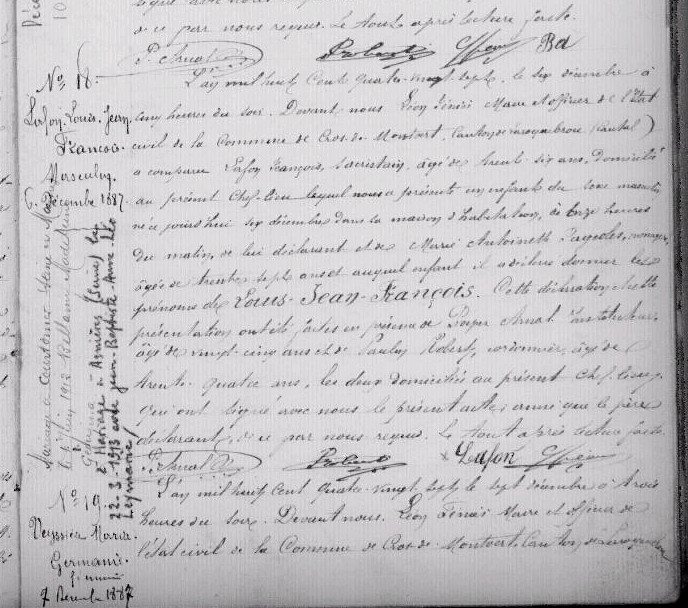 de ce par nous requis. Le tout après lecture faite.
P. Arnal Robert
No 18.
Lafon Louis-Jean
François.
Masculin
6 Décembre 1887.
L'an mil huit cent quatre-vingt sept, le six décembre à
cinq heures du soir. Devant nous Léon Finiès Maire et officier de l'Etat
civil de la Commune de Cros-de-Montvert, Canton de Laroquebrou (Cantal)
a comparu Lafon François, sacristain, âgé de trente-six ans, domicilié
au présent Chef-lieu lequel nous a présenté un enfant du sexe masculin
né aujourd'hui six décembre dans la maison d'habitation, à onze heures
du matin, de lui déclarant et de Marie Antoinette ménagère,
âgée de trente sept ans et auquel enfant il a déclaré donner les
prénoms de Louis-Jean-François. Cette déclaration et cette
présentation ont été faites en présence de Arnal Instituteur,
âgé de vingt-cinq ans et de Paulin Robert, âgé de
trente-quatre ans, les deux domiciliés au présent Chef-lieu,
qui ont signé avec nous le présent acte, ainsi que le père
déclarant, de ce par nous requis. Le tout après lecture faite.
P. Arnal Robert Lafon
Mariage à
1913 Bellamy Madeleine
2e Mariage à Asnières (Seine) le
22-3-1913 avec Jean-Baptiste-Anne-Léo
Leymarie
No 19.
Veyssière Marie
Germaine
féminin
7 Décembre 1887
L'an mil huit cent quatre-vingt sept le sept décembre à trois
heures du soir. Devant nous Léon Finiès Maire et officier de
l'état civil de la Commune de Cros-de-Montvert, Canton de Laroquebrou